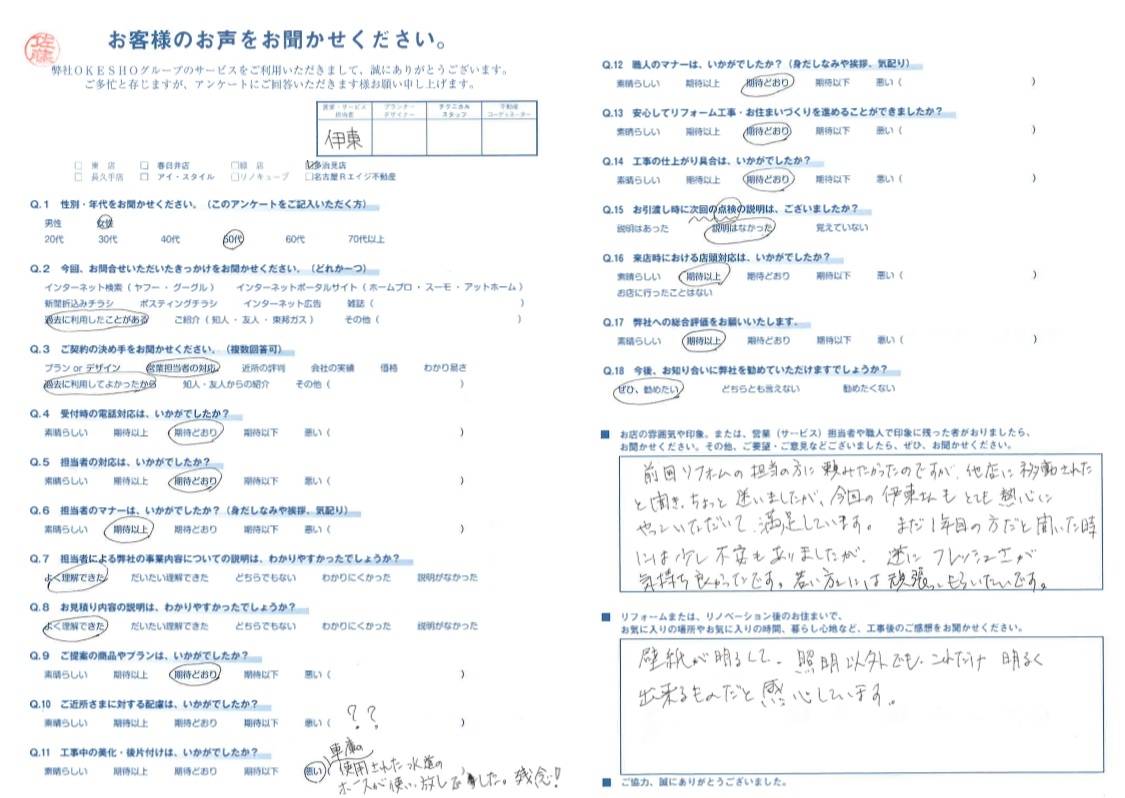 佐藤
お客様のお声をお聞かせください。
弊社ОKESHOグループのサービスをご利用いただきまして、誠にありがとうございます。
ご多忙と存じますが、アンケートにご回答いただきます様お願い申し上げます。
営業・サービス担当者 プランナーデザイナー テクニカルスタッフ 不動産コーディネーター
伊東
□ 東 店 □ 春日井店 □緑 店 ☑多治見店
□ 長久手店 □ アイ・スタイル □リノキューブ □名古屋Rエイジ不動産
Q.1 性別・年代をお聞かせください。（このアンケートをご記入いただく方）
男性 女性
20代 30代 40代 50代 60代 70代以上
Q.2 今回、お問合せいただいたきっかけをお聞かせください。（どれか一つ）
インターネット検索（ヤフー・グーグル） インターネットポータルサイト（ホームプロ・スーモ・アットホーム）
新聞折込みチラシ ポスティングチラシ インターネット広告 雑誌（ ）
過去に利用したことがある ご紹介（知人・友人・東邦ガス） その他（ ）
Q.3 ご契約の決め手をお聞かせください。（複数回答可）
プラン or デザイン 営業担当者の対応 近所の評判 会社の実績 価格 わかり易さ
過去に利用してよかったから 知人・友人からの紹介 その他（ ）
Q.4 受付時の電話対応は、いかがでしたか？
素晴らしい 期待以上 期待どおり 期待以下 悪い（ ）
Q.5 担当者の対応は、いかがでしたか？
素晴らしい 期待以上 期待どおり 期待以下 悪い（ ）
Q.6 担当者のマナーは、いかがでしたか？（身だしなみや挨拶、気配り）
素晴らしい 期待以上 期待どおり 期待以下 悪い（ ）
Q.7 担当者による弊社の事業内容についての説明は、わかりやすかったでしょうか？
よく理解できた だいたい理解できた どちらでもない わかりにくかった 説明がなかった
Q.8 お見積り内容の説明は、わかりやすかったでしょうか？
よく理解できた だいたい理解できた どちらでもない わかりにくかった 説明がなかった
Q.9 ご提案の商品やプランは、いかがでしたか？
素晴らしい 期待以上 期待どおり 期待以下 悪い（ ）
Q.10 ご近所さまに対する配慮は、いかがでしたか？
素晴らしい 期待以上 期待どおり 期待以下 悪い（ ？？ ）
Q.11 工事中の美化・後片付けは、いかがでしたか？
車庫の
素晴らしい 期待以上 期待どおり 期待以下 悪い（使用された水道の
ホースが使い放しでした。残念！
Q.12 職人のマナーは、いかがでしたか？（身だしなみや挨拶、気配り）
素晴らしい 期待以上 期待どおり 期待以下 悪い（ ）
Q.13 安心してリフォーム工事・お住まいづくりを進めることができましたか？
素晴らしい 期待以上 期待どおり 期待以下 悪い（ ）
Q.14 工事の仕上がり具合は、いかがでしたか？
素晴らしい 期待以上 期待どおり 期待以下 悪い（ ）
Q.15 お引渡し時に次回の点検の説明は、ございましたか？
説明はあった 説明はなかった 覚えていない
Q.16 来店時における店頭対応は、いかがでしたか？
素晴らしい 期待以上 期待どおり 期待以下 悪い（ ）
お店に行ったことはない
Q.17 弊社への総合評価をお願いいたします。
素晴らしい 期待以上 期待どおり 期待以下 悪い（ ）
Q.18 今後、お知り合いに弊社を勧めていただけますでしょうか？
ぜひ、勧めたい どちらとも言えない 勧めたくない
■ お店の雰囲気や印象。または、営業（サービス）担当者や職人で印象に残った者がおりましたら、
お聞かせください。その他、ご要望・ご意見などございましたら、ぜひ、お聞かせください。
前回リフォームの担当の方に頼みたかったのですが、他店に移動された
と聞き、ちょっと迷いましたが、今回の伊東さんもとても熱心に
やっていただいて、満足しています。 まだ1年目の方だと聞いた時
には少し不安もありましたが、 逆に フレッシュさが
気持ち良かったです。若い方には頑張ってもらいたいです。
■ リフォームまたは、リノベーション後のお住まいで、
お気に入りの場所やお気に入りの時間、暮らし心地など、工事後のご感想をお聞かせください。
壁紙が明るくて、照明以外でも、これだけ 明るく
出来るものだと感心しています。
■ ご協力、誠にありがとうございました。